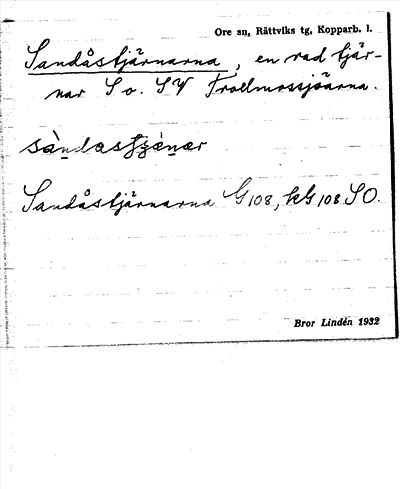 Ore sn, Rättviks tg, Kopparb. l.
Sandåstjärnarna, en rad tjär-
nar S o. SV Trollmossjöarna.
Sandåstjärnarna G108, kG108 SO.
Bror Lindén 1932